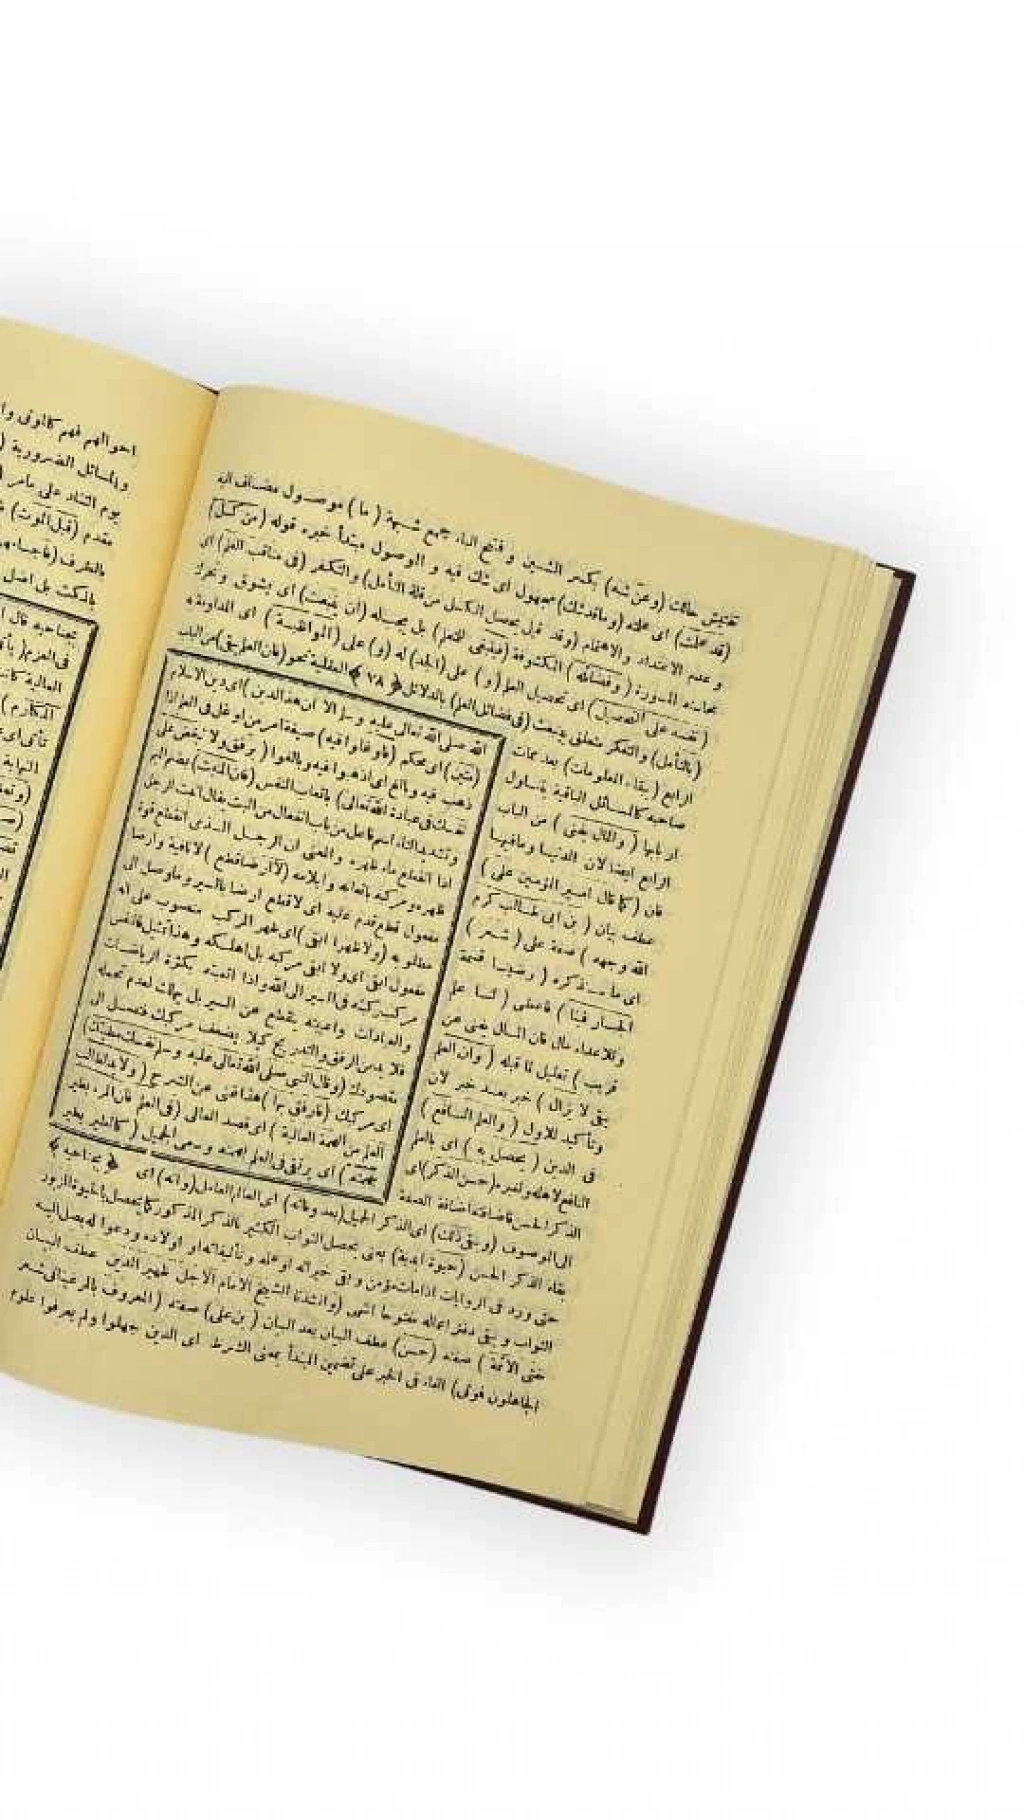 تفتيش حالك (وعن شبه) بكسر الشين وفتح الباء جمع شبهة (ما) موصول مضاف اليه
(قد علمت) اى علمته (وما قد شك) مجهول اى شك فيه و الموصول مبتدأ خبره قوله (من كسل)
وعدم الاعتداد والاهتمام (وقد قيل يحصل الكسل من قلة التأمل) والتفكر (فى مناقب العلم) اى
محامده المسورة (وفضائله) المكشوفة (فينبغى للمتعلم) بل يجب له (ان ينبعث) اى يشوق وتحرك
(نفسه على التحصيل) اى تحصيل العلم (و) على (الجد) له (و) على (المواظبة) اى المداومة
(بالتأمل) والتفكر متعلق ينبعث (فى فضائل العلم) بالدلائل ﴿ ٧٨ ﴾ العقلية نحو (فان العلم يبقى) من الباب
الرابع (ببقاء المعلومات) بعد ممات
صاحبه كالمسائل الباقية بتساول
اربابها (والمال يفنى) من الباب
الرابع ايضا لان الدنيا ومافيها
فان (كما قال امير المؤمنين على)
عطف بيان (بن ابى طالب كرم
الله وجهه) صفة على (شعر)
اى ما سنذكره (رضينا قسمة
الجبار فينا) فاعطى (لنا علم
وللاعداء مال فان المال يفنى عن
قريب) تعليل لما قبله (وان العلم
يبقى لا يزال) خبر بعد خبر لان
وتأكيد للاول (والعلم النافع)
فى الدين (يحصل به) اى بالعلم
النافع لاهله ولغيره (حسن الذكر) اى
الذكر الحسن فاضافته اضافة الصفة
الى الموصوف (ويبقى ذلك) اى الذكر الجميل (بعد وفاته) اى العالم العامل (وانه) اى
بقاء الذكر الحسن (حيوة ابدية) يعنى يحصل الثواب الكثير بالذكر المذكور كما يحصل بالحيوة المزبور
حتى ورد فى الروايات اذا مات مؤمن وابقى خيراته او علمه وتأليفاته او اولاده ودعوا له يصل اليه
الثواب ويبقى دفتر اعماله مفتوحا انتهى (وانشدنا الشيخ الامام الاجل ظهير الدين عطف البيان
مفتى الائمة) صفته (حسن) عطف البيان بعد البيان (بن على) صفته (المعروف بالمرغينانى شعر
الجاهلون فموتى) الفاء فى الخبر على تضمين المبتدأ بمعنى الشرط اى الذين جهلوا ولم يعرفوا علوم
الله صلى الله تعالى عليه وسلم الا ان هذا الدين) اى دين الاسلام
(متين) اى محكم (فاوغلوا فيه) صيغة امر من اوغل فى العلم اذا
ذهب فيه وبالغ اى اذهبوا فيه وبالغوا (برفق ولا تبغض على
نفسك فى عبادة الله تعالى) باتعاب النفس (فان المنبت) بضم الميم
وتشديد التاء اسم فاعل من باب انفعال من البت يقال انبت الرجل
اذا انقطع ماء ظهره والمعنى ان الرجل الذى انقطع قوة
ظهره ومركبه باتعابه وايلامه (لا ارضا قطع) لا نافية وارضا
مفعول قطع قدم عليه اى لا قطع ارضا بالسير وما وصل الى
مطلوبه (ولا ظهرا ابقى) اى ظهر المركب منصوب على انه
مفعول ابقى اى ولا ابقى مركبه بل اهلكه وهذا تمثيل فالنفس
مركب ركبته فى السير الى الله واذا اتعبته بكثرة الرياضات
والعبادات واعيته يقطع عن السير بل يهلك لعدم تحمله
فلا بد من الرفق والتدريج كيلا يضعف مركبك فتصل الى
مقصودك (وقال النبى صلى الله تعالى عليه وسلم نفسك مطيتك)
اى مركبك (فارفق بها) هذا غنى عن الشرح (ولا بد لطالب
العلم من الهمة العالية) اى قصد العالى (فى العلم فان المرء يطير
بهمته) اى يرتقى فى العلم بهمته وسعى الجميل (كالطير يطير
﴿ بجناحيه ﴾
احوالهم فهم كالموتى
والمسائل الضرورية
يوم التناد على مامر
مقدم (قبل الموت)
بجناحيه قال